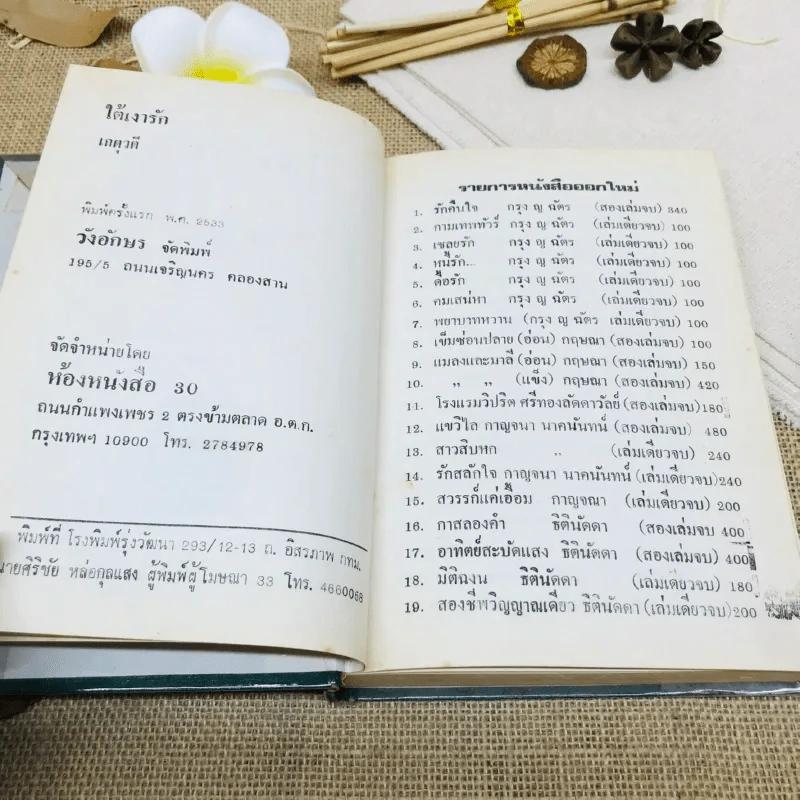 ใต้เงารัก
เกตุวดี
พิมพ์ครั้งแรก พ.ศ. 2533
วังอักษร จัดพิมพ์
195/5 ถนนเจริญนคร คลองสาน
จัดจำหน่ายโดย
ห้องหนังสือ 30
ถนนกำแพงเพชร 2 ตรงข้ามตลาด อ.ต.ก.
กรุงเทพฯ 10900 โทร. 2784978
พิมพ์ที่ โรงพิมพ์รุ่งวัฒนา 293/12-13 ถ. อิสรภาพ กทม.
นายศิริชัย หล่อกุลแสง ผู้พิมพ์ผู้โฆษณา 33 โทร. 4660058
รายการหนังสือออกใหม่
1. รักคืนใจ กรุง ญ ฉัตร (สองเล่มจบ) 340
2. กามเทพทัวร์ กรุง ญ ฉัตร (เล่มเดียวจบ) 100
3. เชลยรัก กรุง ญ ฉัตร (เล่มเดียวจบ) 100
4. หนี้รัก... กรุง ญ ฉัตร (เล่มเดียวจบ) 100
5. ดื้อรัก กรุง ญ ฉัตร (เล่มเดียวจบ) 100
6. คมเสน่หา กรุง ญ ฉัตร (เล่มเดียวจบ) 100
7. พยาบาทหวาน (กรุง ญ ฉัตร เล่มเดียวจบ) 100
8. เข็มซ่อนปลาย (อ่อน) กฤษณา (สองเล่มจบ) 100
9. แมลงและมาลี (อ่อน) กฤษณา (สองเล่มจบ) 150
10. ,, ,, (แข็ง) กฤษณา (สองเล่มจบ) 420
11. โรงแรมวิปริต ศรีทองลัดดาวัลย์ (สองเล่มจบ)180
12. แขวิไล กาญจนา นาคนันทน์ (สองเล่มจบ) 480
13. สาวสิบหก ,, (เล่มเดียวจบ) 240
14. รักสลักใจ กาญจนา นาคนันทน์ (เล่มเดียวจบ)240
15. สวรรก็แค่เอื้อม กาญจณา (เล่มเดียวจบ) 200
16. กาสลองคำ ธิตินัดดา (สองเล่มจบ 400
17. อาทิตย์สะบัดแสง ธิตินัดดา (สองเล่มจบ) 400
18. มิติฉงน ธิตินัดดา (เล่มเดียวจบ) 180
19. สองชีพวิญญาณเดียว ธิตินัดดา (เล่มเดียวจบ)200